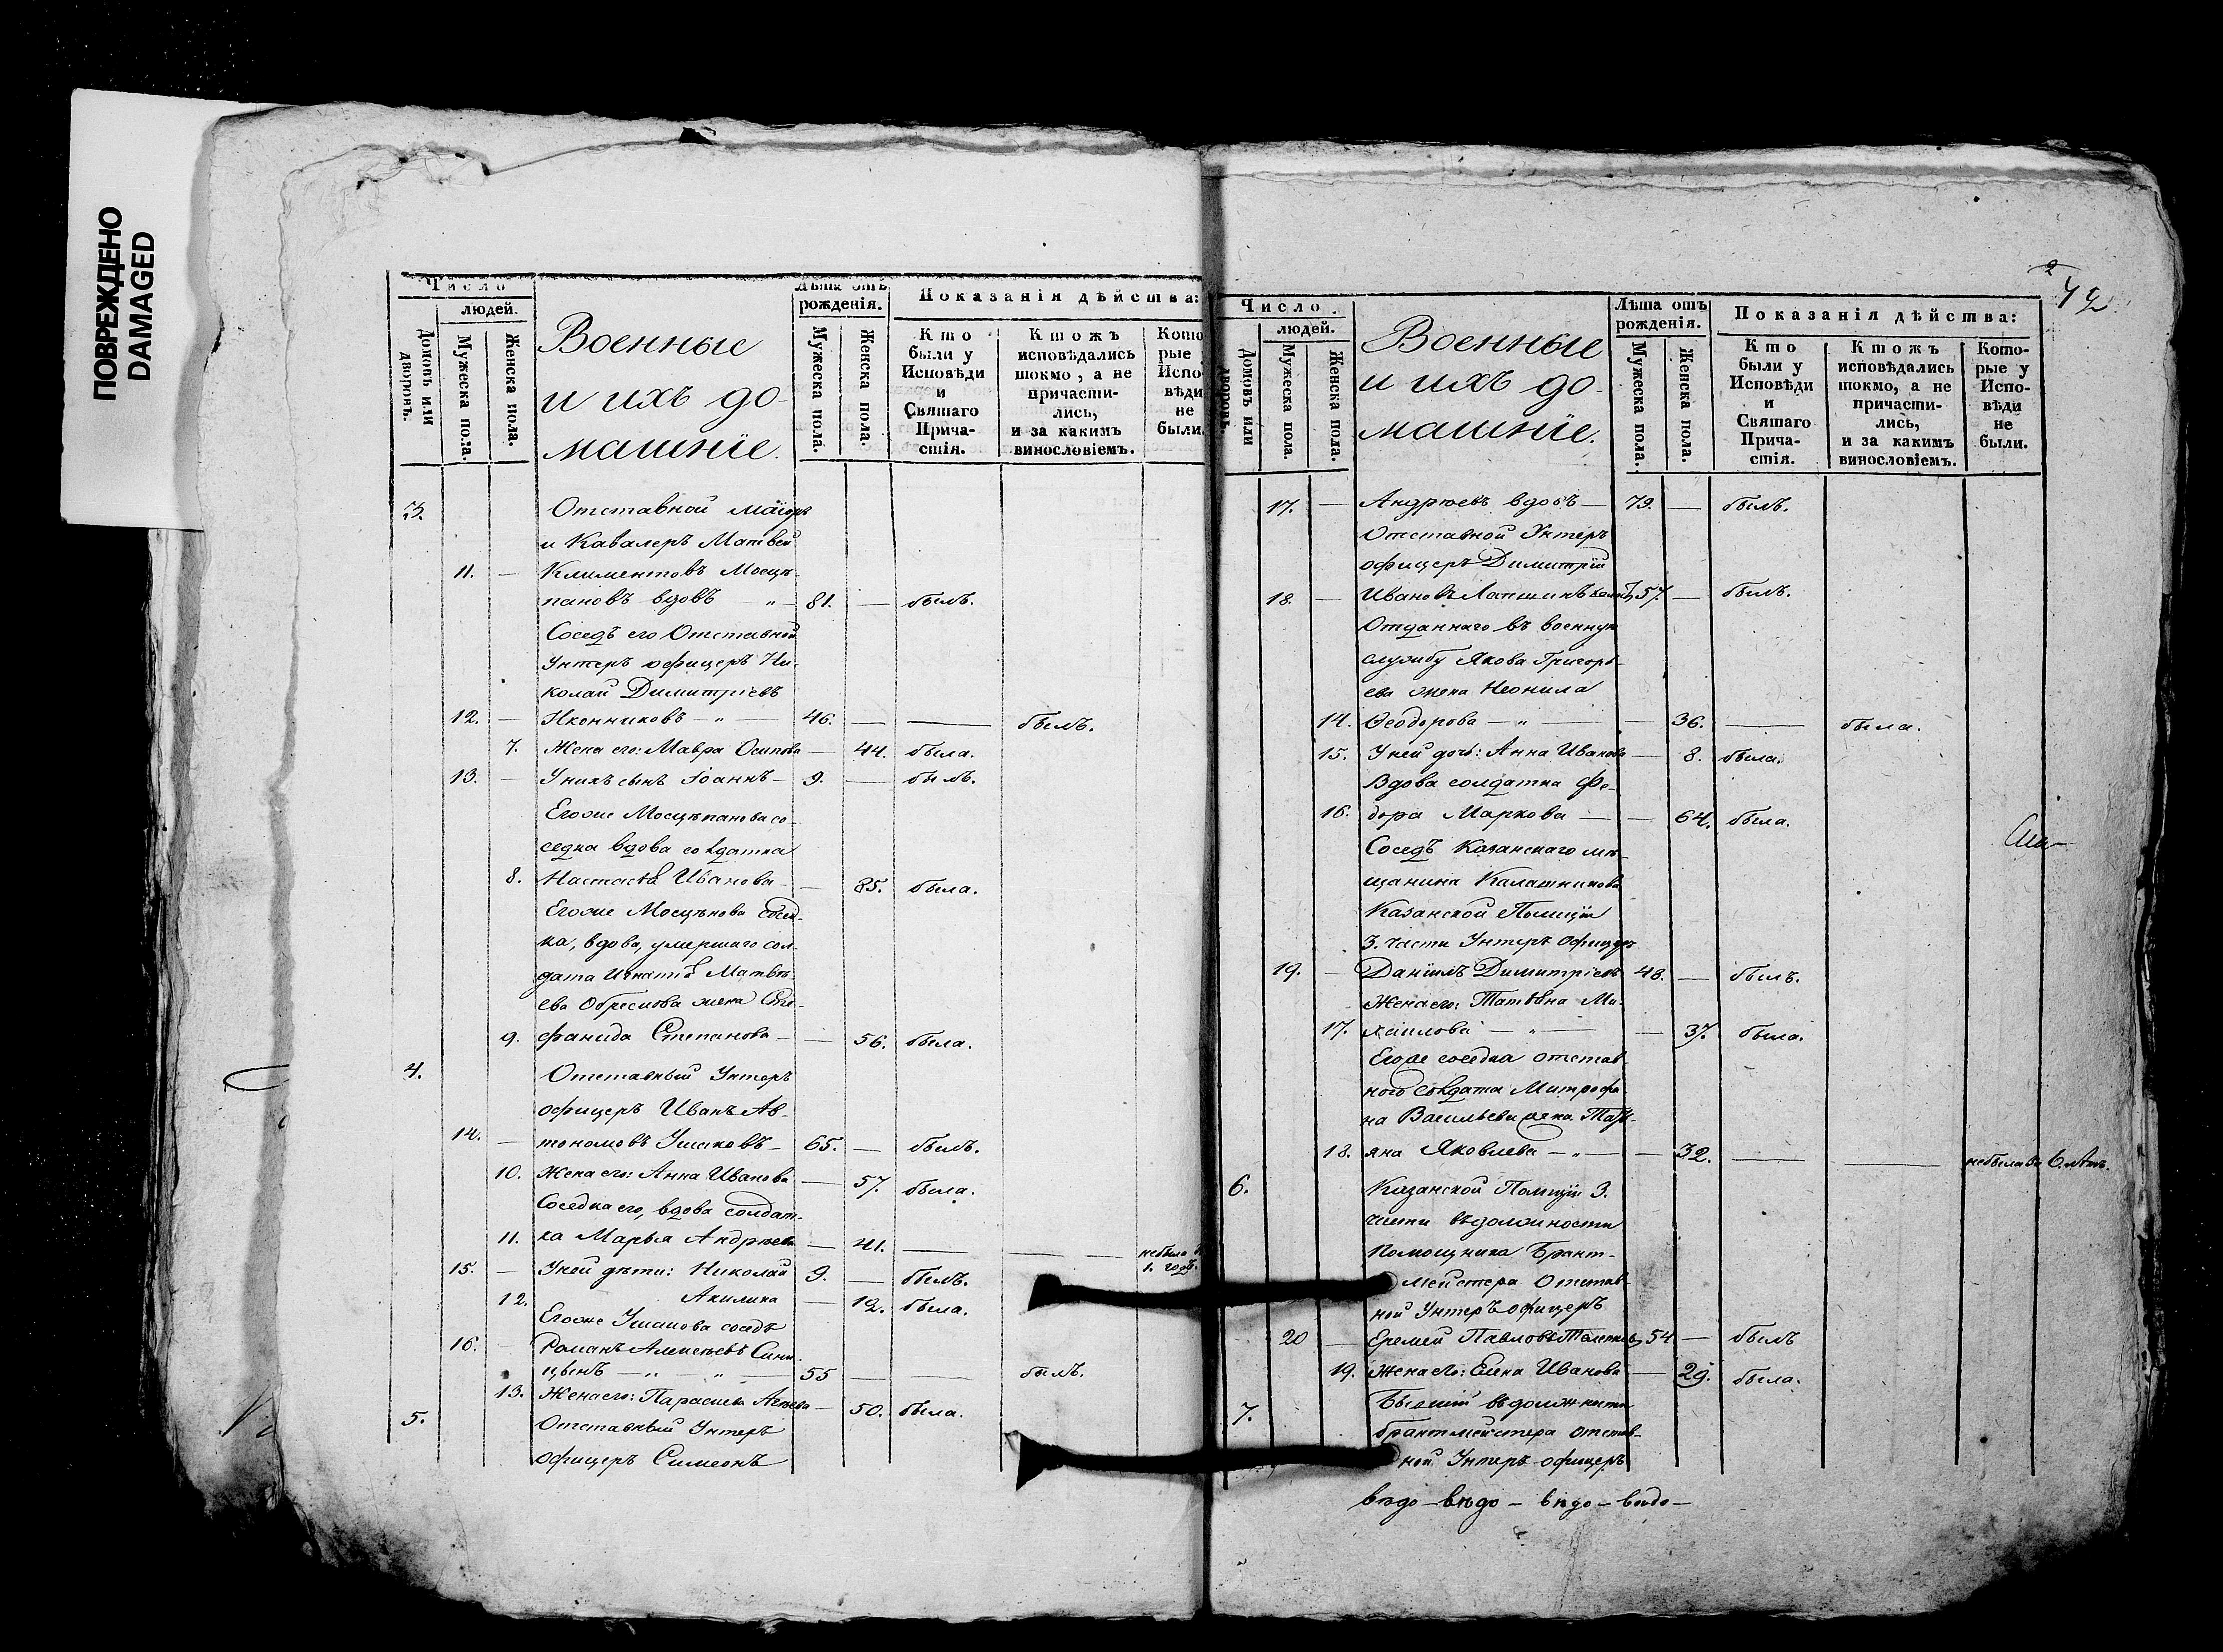 ПОВРЕЖДЕНО
DAMAGED
Число
людей.
Домовъ или дворовъ.
Мужеска пола.
Женска пола.
Военные
и ихъ до-
машніе.
Лѣта отъ рожденія.
Мужеска пола.
Женска пола.
Показанія дѣйства:
Кто были у Исповѣди и Святаго Прича-стія.
Ктожъ исповѣдались токмо, а не причасти-лись, и за какимъ винословіемъ.
Кото рые Испо вѣди не были
3. Отставной Маіоръ
и Кавалеръ Матвей
11. — Климентовъ Мосцѣ-
пановъ вдовъ „ — 81. — былъ.
Соседъ его Отставной
Унтеръ офицеръ Ни-
колай Димитріевъ
12. — Иконниковъ — „ — 46. — — былъ.
7. Жена его: Мавра Осипова — 44. была.
13. — У нихъ сынъ Іоаннъ — 9. — былъ.
Егоже Мосцѣпанова со-
седка вдова солдатка
8. Настасья Иванова — — 85. была.
Егоже Мосцѣнова сосед-
ка, вдова, умершаго сол-
дата Игнатья Матвѣ-
ева Обрескова жена Сте-
9. фанида Степанова — — 56. была.
4. Отставный Унтеръ
офицеръ Иванъ Ав-
14. — тономовъ Ушаковъ — 65. — былъ.
10. Жена его: Анна Иванова — 57. была.
Соседка его, вдова солдат-
11. ка Марья Андреева — 41. — — — небыла
1. годъ.
15. — У ней дѣти: Николай 9. — былъ.
12. Акилина — 12. была.
Егоже Ушакова соседъ
16. — Романъ Алексѣевъ Сини-
цынъ — „ — „ — 55 — — былъ.
13. Жена его: Параскева — 50. была.
5. Отставный Унтеръ
офицеръ Симеонъ
2
Число.
людей.
Домовъ или дворовъ.
Мужеска пола.
Женска пола.
Военные
и ихъ до-
машніе.
Лѣта отъ рожденія.
Мужеска пола.
Женска пола.
Показанія дѣйства:
Кто были у Исповѣди и Святаго Прича-стія.
Ктожъ исповѣдались токмо, а не причасти-лись, и за какимъ винословіемъ.
Кото-рые у Испо-вѣди не были.
17. — Андреевъ вдовъ — 79. — былъ.
Отставной Унтеръ
офицеръ Димитрій
18. — Ивановъ Лапшинъ 57. — былъ.
Отданнаго въ военную
службу Якова Григорь-
ева жена Неонила
14. Ѳеодорова — „ — — 36. — была.
15. У ней дочь: Анна Иванова — 8. была.
Вдова солдатка Фе-
16. дора Маркова — — 64. была.
Соседъ Казанскаго мѣ-
щанина Калашникова
Казанской Полиціи
3. части Унтеръ Офицеръ
19. — Даніилъ Димитріевъ 48. — былъ.
Жена его: Татьяна Ми-
17. хаилова — „ — — 37. была.
Егоже соседка отстав-
ного солдата Митрофа-
на Васильева жена Татья-
18. яна Яковлева — „ — — 32. — — небыла 6. лѣтъ.
6. Казанской Полиціи 3.
части въ должности
Помощника Брант-
мейстера Отстав-
ной Унтеръ офицеръ
20 — Еремей Павловъ 54 — былъ
19. Жена его: Елена Иванова — 29. была.
7. Бывшій въ должности
брантмейстера отстав-
ной Унтеръ офицеръ
вѣдо — вѣдо — вѣдо — вѣдо —